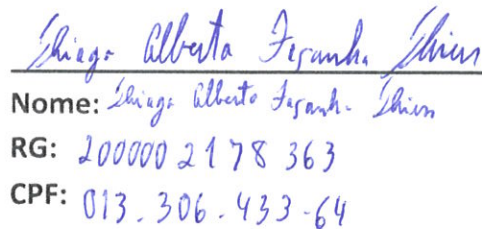 Thiago Alberto Façanha Thiers
Nome: Thiago Alberto Façanha Thiers
RG: 2000002178363
CPF: 013.306.433-64